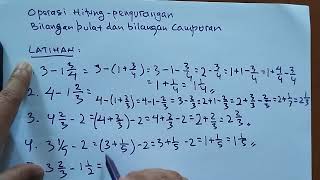 Operasi Hitung-pengurangan
Bilangan bulat dan bilangan Campuran
LATIHAN:
3 - 1 3/4 = 3 - (1 + 3/4) = 3 - 1 - 3/4 = 2 - 3/4 = 1 + 1 - 3/4 = 1 + 4/4 - 3/4
= 1 + 1/4 = 1 1/4 //
2. 4 - 1 2/3 =
3. 4 2/3 - 2 = (4 + 2/3) - 2 = 4 + 2/3 - 2 = 2 + 2/3 = 2 2/3 //
4. 3 1/5 - 2 = (3 + 1/5) - 2 = 3 + 1/5 - 2 = 1 + 1/5 = 1 1/5 //
3 2/3 - 1 1/2 =